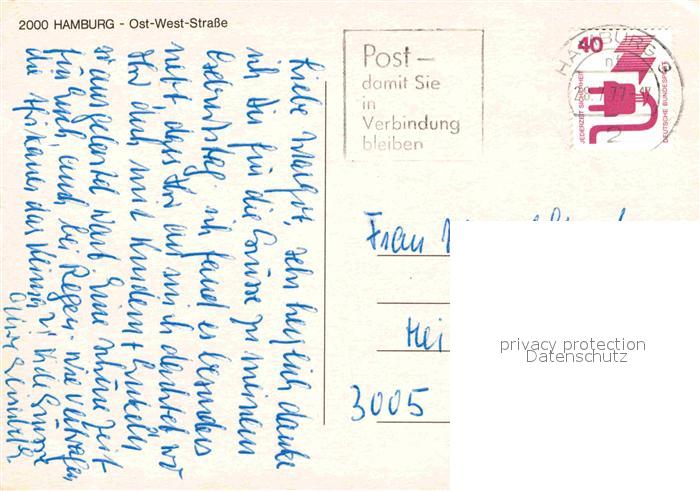 2000 HAMBURG - Ost-West-Straße
Post -
damit Sie
in
Verbindung
bleiben
HAMBURG
40
JEDERZEIT SICHERHEIT
DEUTSCHE BUNDESPOST
2
Liebe Margot, sehr herzlich danke
ich Dir für die Grüsse zu meinem
Geburtstag. ich fand es besonders
nett, dass Ihr an mich dachtet, wo
Ihr doch mit Kindern + Enkeln
so ausgelastet wart. Eine schöne Zeit
für Euch, auch bei Regen. Wie vertragen
die Afrikaner das Klima?
Frau
3005
privacy protection
Datenschutz